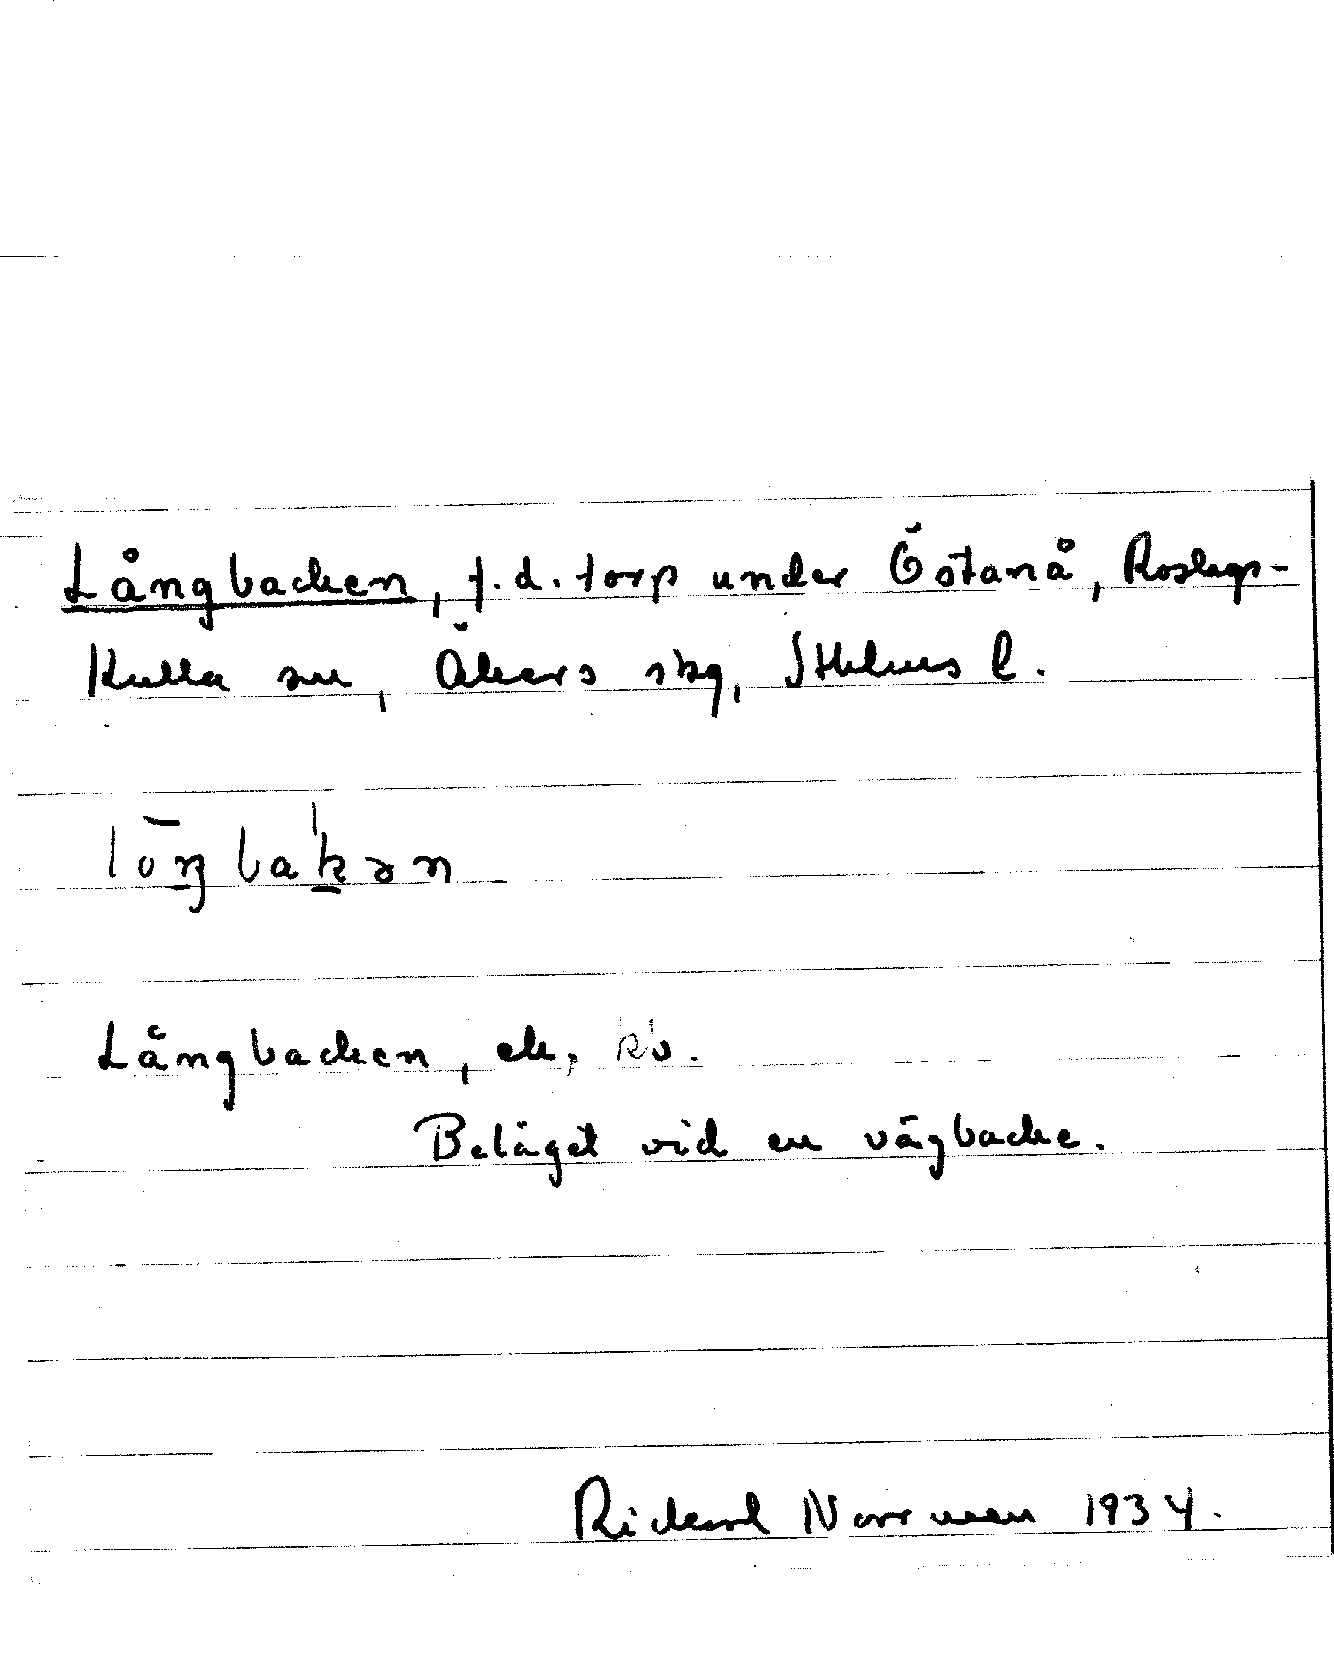 Långbacken, f.d. torp under Östanå, Roslags-
Kulla sn, Åkers skg, Sthlms l.
lōŋbak̠ən
Långbacken, ek.
Beläget vid en vägbacke.
Rickard Norrman 1934.